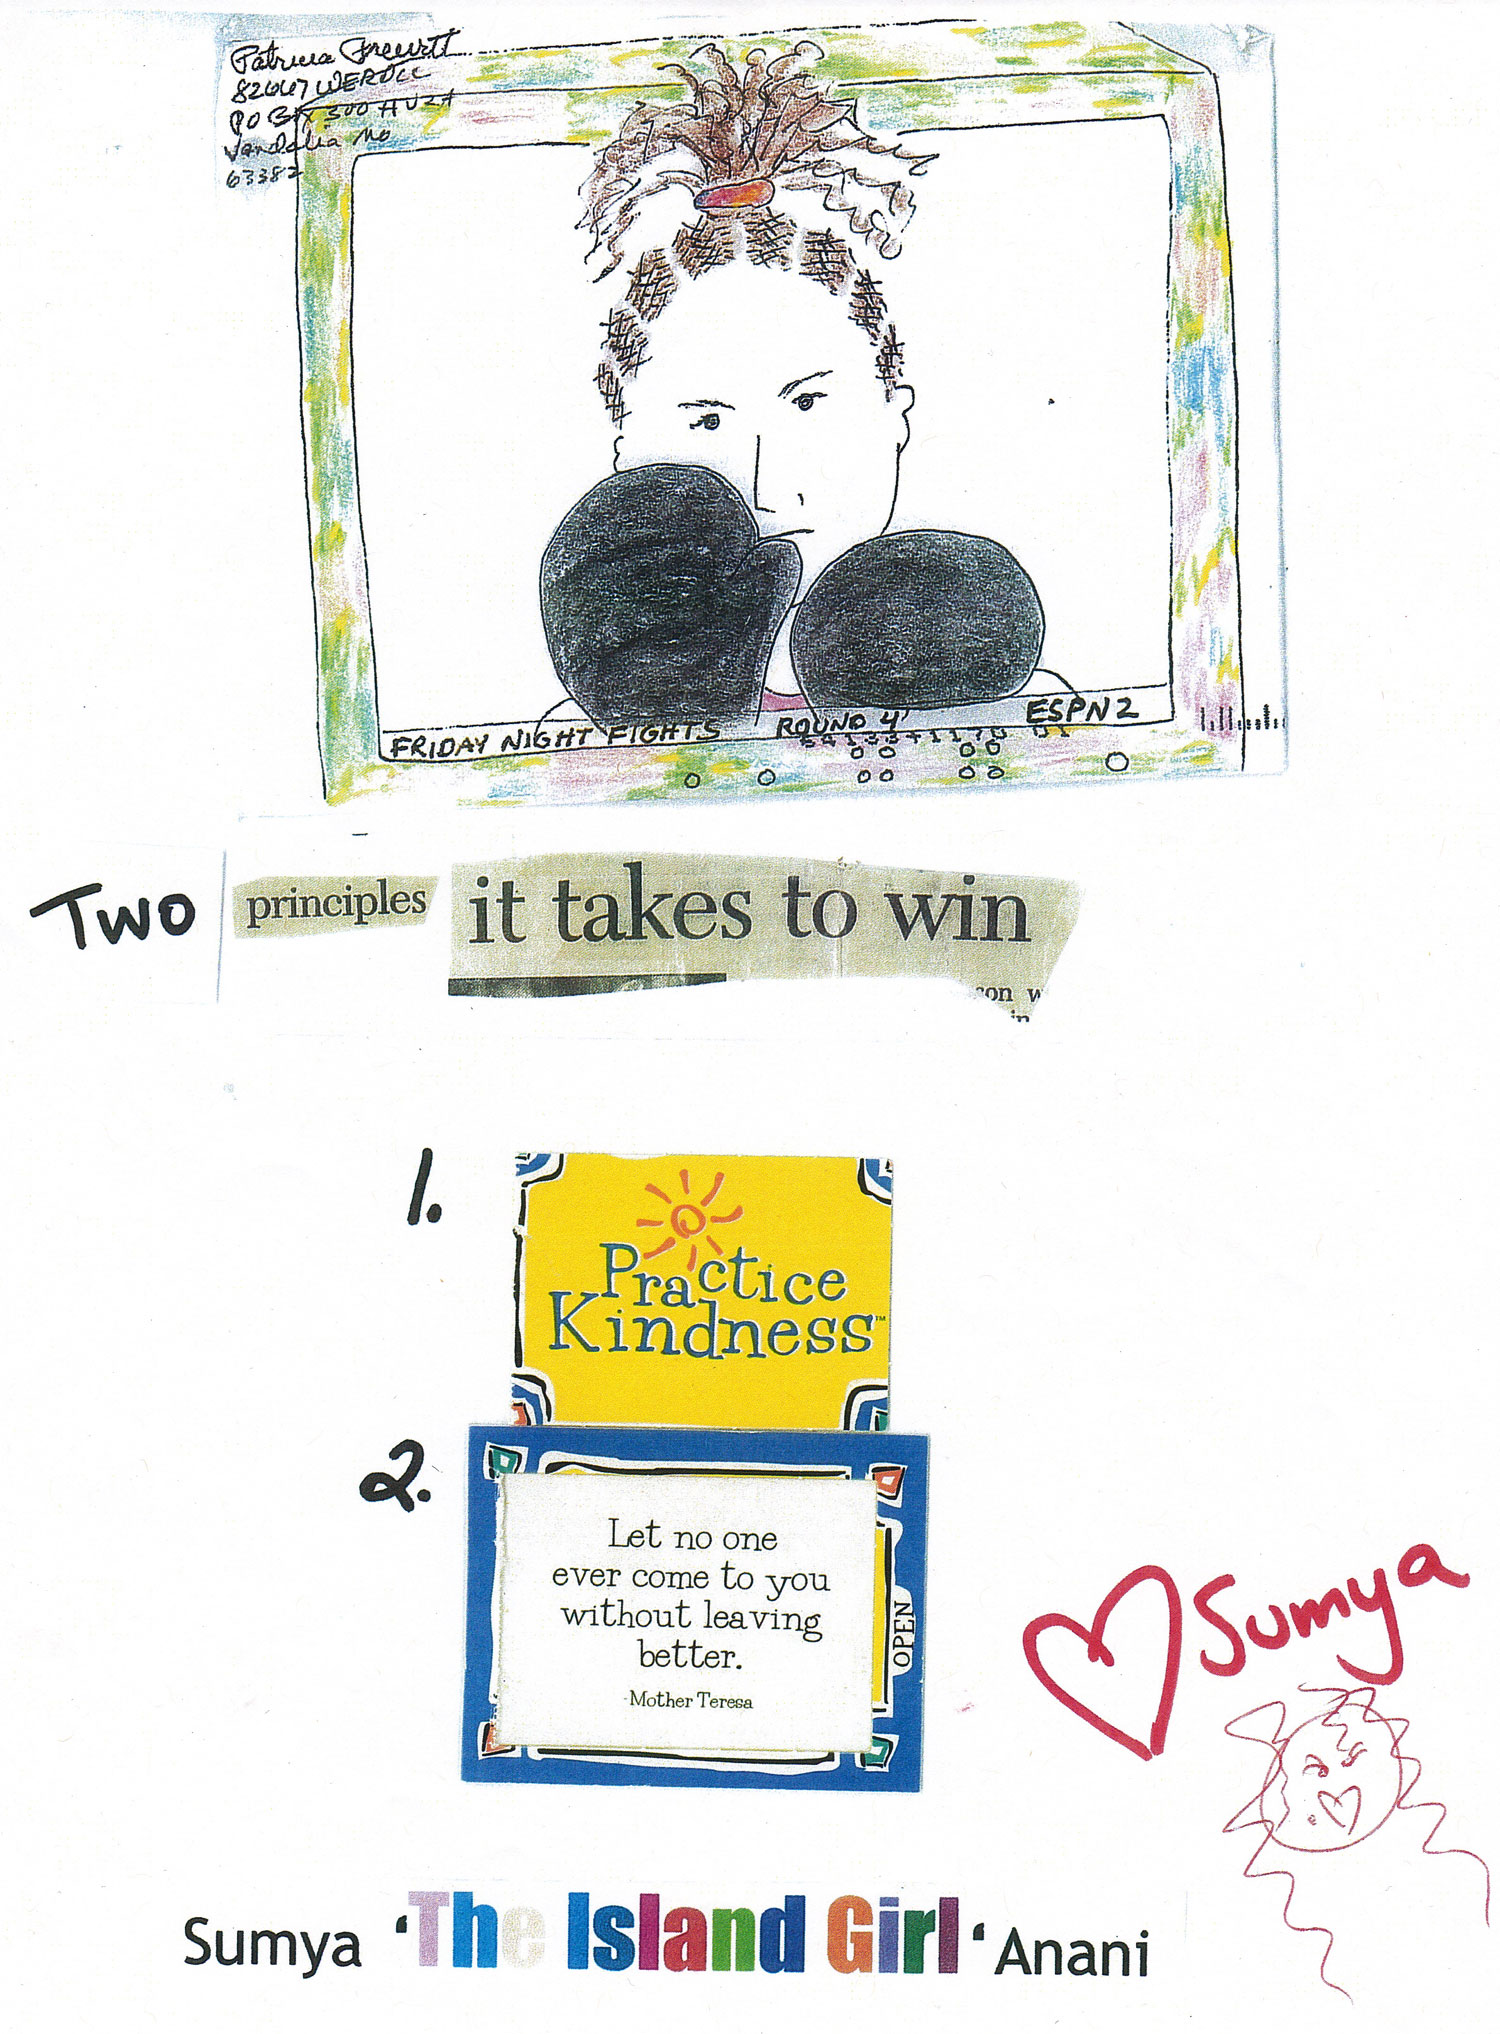 Patricia Prewitt
82667 WERDCC
PO Box 300 HU 2A
Vandalia Mo
63382
FRIDAY NIGHT FIGHTS ROUND 4 ESPN 2
Two principles it takes to win
1.
Practice
Kindness™
2.
Let no one
ever come to you
without leaving
better.
-Mother Teresa
OPEN
Sumya
Sumya 'The Island Girl' Anani